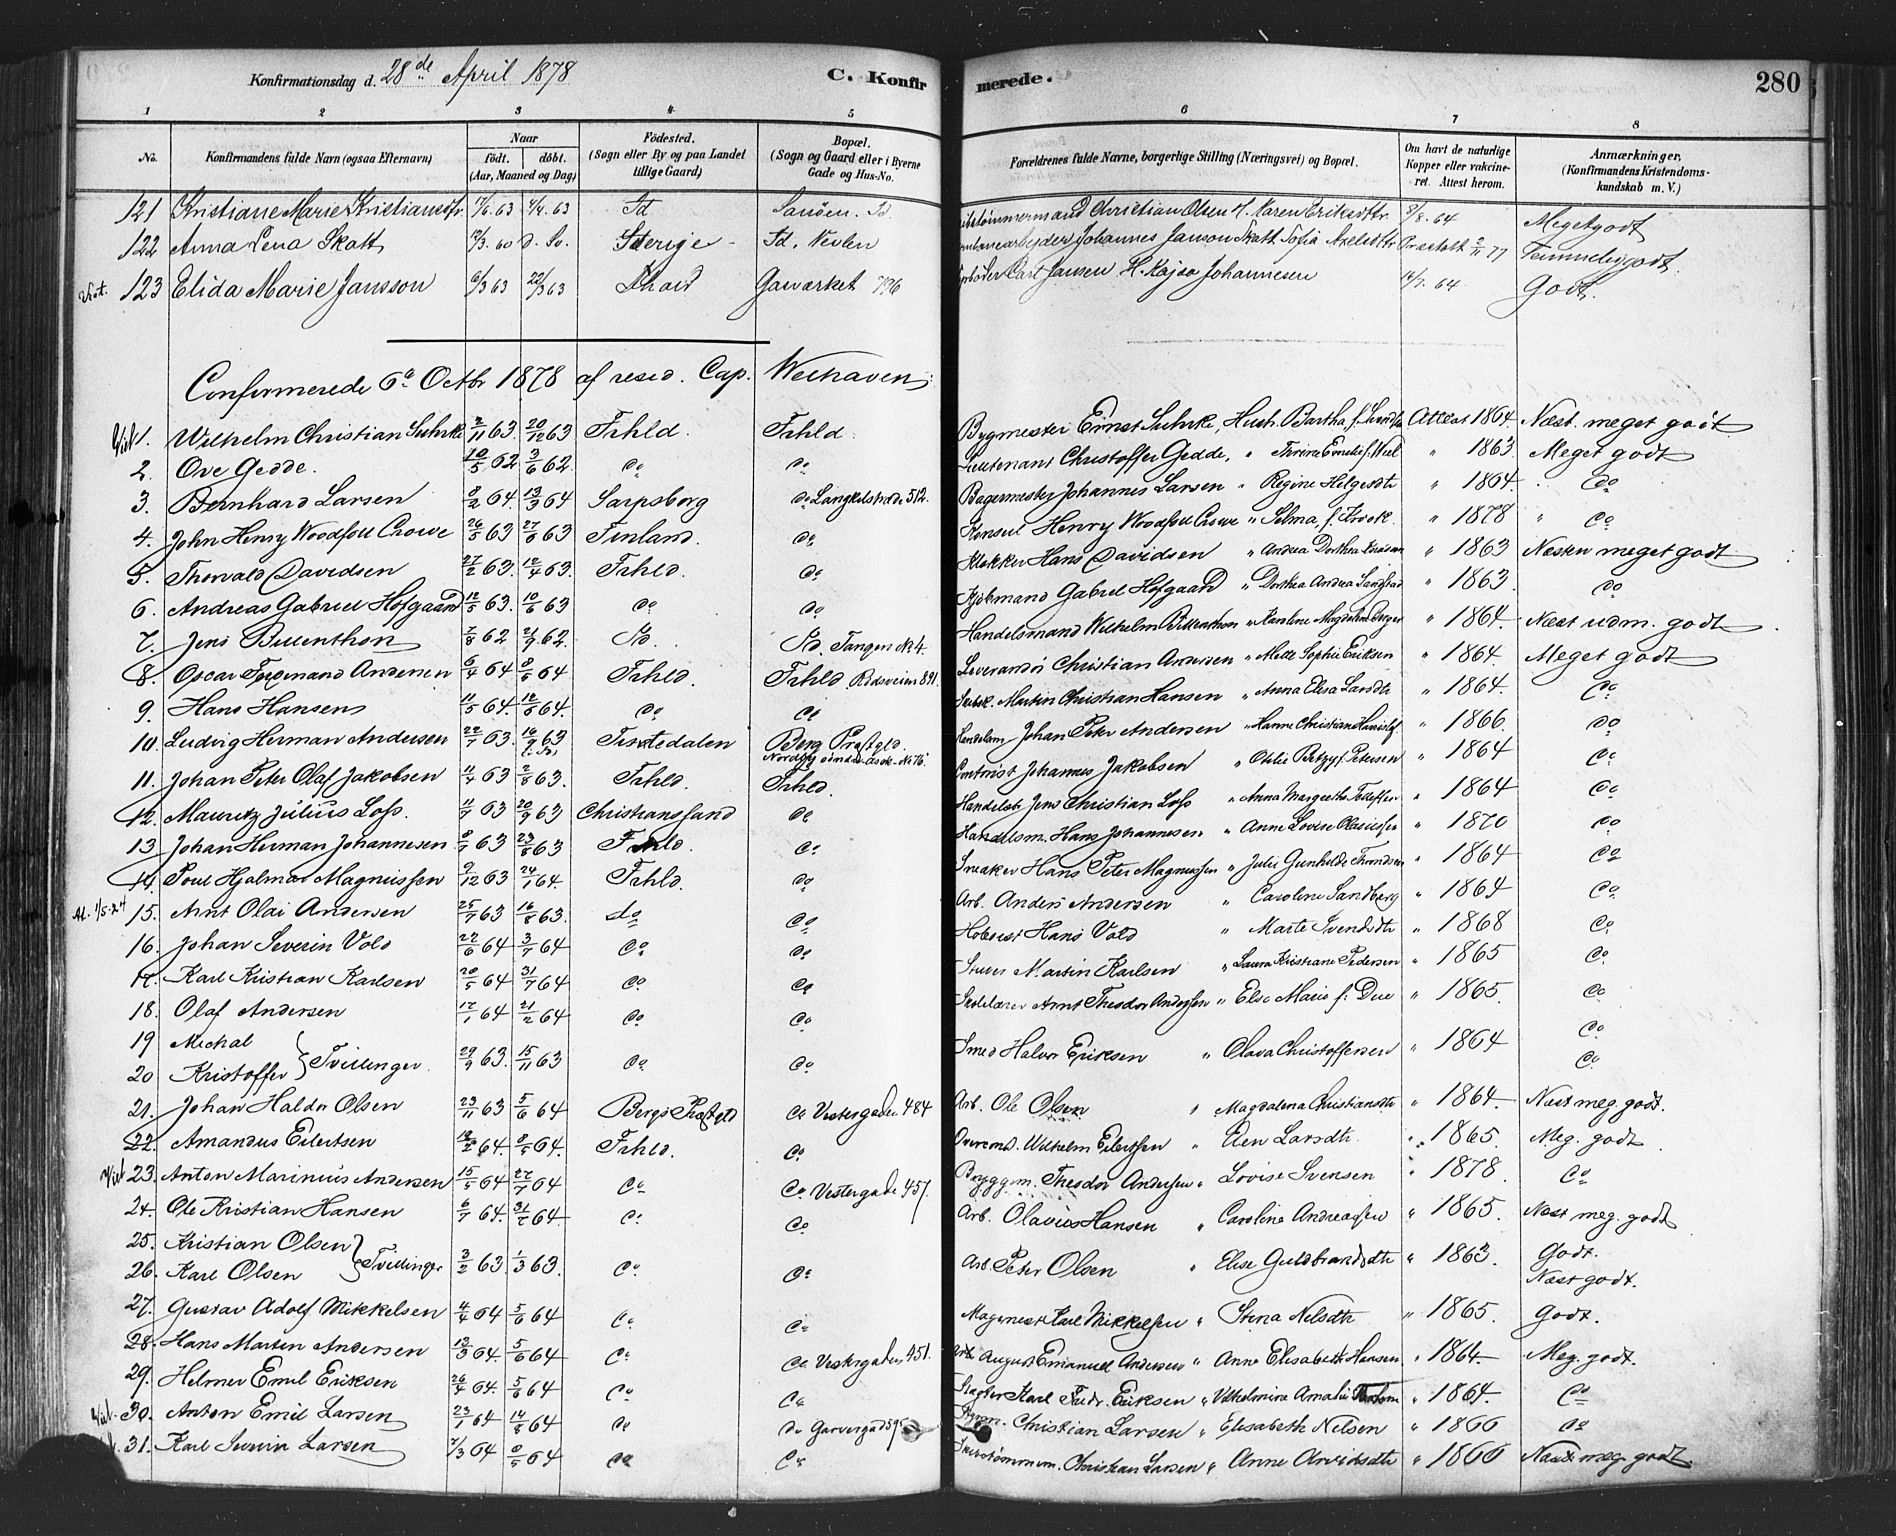 Konfirmationsdag d. 28de April 1878 C. Konfirmerede. 280
1 2 3 4 5 6 7 8
No. Konfirmandens fulde Navn (ogsaa Efternavn) Naar født. døbt. (Aar, Maaned og Dag) Fødested. (Sogn eller By og paa Landet tillige Gaard) Bopæl. (Sogn og Gaard eller i Byerne Gade og Hus-No. Forældrenes fulde Navne, borgerlige Stilling (Næringsvei) og Bopæl. Om havt de naturlige Kopper eller vakcineret. Attest herom. Anmærkninger. (Konfirmandens Kristendomskundskab m. V.)
121 Kristiane Marie Kristiansdtr. Id Christian Olsen H. Karen Eriksdtr 64 Meget godt
122 Anna Lena Skatt Sverige Id. Johannes Janson Skatt Sofia Axelsdtr 77 Temmelig godt
123 Elida Marie Jansson 6/3 63 22/3 63 Carl Jansen H. Kajsa Johannesen 64 Godt.
Confirmerede 6te Octbr 1878 af resid. Cap. Welhaven:
1. Wilhelm Christian Suhrke 2/11 63 20/12 63 Frhld. Frhld. Bygmester Ernst Suhrke, Hust. Bartha f. Attest 1864. Næst. meget godt
2. Ove Gedde. 10/5 62 3/6 62. do do Lieutenant Christoffer Gedde, " Emelie f. " 1863 Meget godt
3. Bernhard Larsen 8/2 64 13/3 64 Sarpsborg do 512. Bagermester Johannes Larsen " Regine Helgesdtr " 1864. " do
4. John Henry Woodfall Crowe 26/5 63 27/6 63 Finland. do Konsul Henry Woodfall Crowe " Selma f. " 1878 " do
5. Thorvald Davidsen 27/2 63. 12/4 63. Frhld. do Klokker Hans Davidsen " Andrea Dorthea " 1863 Næsten meget godt
6. Andreas Gabriel Hofgaard 12/5 63. 10/6 63 do do Gabriel Hofgaard " Dorthea Andrea " 1863. do
7. Jens Buenthon 7/8 62 21/9 62. Id. Id. Tangen No 4. Handelsmand Wilhelm " Karoline Magdalena " 1864. Næst udm. godt
8. Oscar Ferdinand Andersen 6/4 64 8/5 64 Frhld. Frhld. 891. Leverandør Christian Andersen " Mette Sophie Eriksen " 1864. Meget godt
9. Hans Hansen 11/5 64. 12/6 64. do do Martin Christian Hansen " Anna Elisa Larsdtr " 1864. do
10. Ludvig Herman Andersen 22/7 63. 16/9 63 Tistedalen Berg Præstgld. No 76. Handelsm Johan Peter Andersen " Hanne Christiane " 1866. do
11. Johan Peter Olaf Jakobsen 11/4 63 2/8 63. Frhld. Frhld. Johannes Jakobsen " Othilie f. Petersen " 1864 do
12. Mauritz Julius Loss. 11/7 63 20/9 63 Christianssand do Jens Christian Loss " Anna Margrethe " 1864 do
13 Johan Herman Johannesen 8/7 63 23/8 63 Frhld. do Handelsm. Hans Johannesen " Anne Lovise " 1870 do
14. Poul Hjalmar Magnussen 9/12 63 24/1 64. Frhld. do Snekker Hans Peter Magnussen " Julie Gunhilde " 1864 do
15. Arnt Olai Andersen 25/7 63 16/8 63. do do Arb. Anders Andersen " Caroline Sandberg " 1864 do
16. Johan Severin Vold 22/6 64 3/7 64 do do Hans Vold " Marte Svendsdtr " 1868 do
17. Karl Kristian Karlsen 20/5 64 31/7 64 do do Stuer Martin Karlsen " Laura Kristiane Pedersen " 1865 do
18. Olaf Andersen 12/1 64 21/2 64 do do Arnt Theodor Andersen " Elsa Marie f. Due " 1865. do
19 Michal do
20 Kristoffer } Tvillinger. 29/9 63. 15/11 63 do do Smed Halvor Eriksen " Olava Christoffersen " 1864 do
21. Johan Haldor Olsen 23/11 63 5/6 64 Bergs Præstgld do Vestergade 484 Arb. Ole Olsen " Magdalena Christiansdtr " 1864. Næst meg. godt.
22. Amandus Eilertsen 64. 8/5 64. Frhld. do Wilhelm Eilertsen " Elen Larsdtr. " 1865. Meg. godt
23. Anton Marinius Andersen 15/5 64 27/7 64 do do Vestergade 457. Bryggem. Theodor Andersen " Lovise Svensen " 1878. do
24. Ole Kristian Hansen 6/7 64. 31/7 64 do do Arb. Olavius Hansen " Caroline Andreassen " 1865. Næst meg. godt
25. Kristian Olsen Godt.
26. Karl Olsen } Tvillinger 3/2 63. 1/3 63. do do Arb. Peter Olsen " Elise Guldbrandsdtr " 1863. Næst godt.
27. Gustav Adolf Mikkelsen 4/4 64 5/6 64 do do Karl Mikkelsen " Stina Nelsdtr " 1865. Godt.
28. Hans Morten Andersen 13/3 64. 5/6 64 do do Vestergaden 451. Arb August Emanuel Andersen " Anne Elisabeth Hansen " 1864. Meg. godt.
29. Helmer Emil Eriksen 26/4 64. 5/6 64 do do Slagter Karl Fredr. Eriksen " Vilhelmine Amalie " 1864. do
30. Anton Emil Larsen 23/1 64 14/8 64 do do Garvergad 595 Christian Larsen " Elisabeth Nelsen " 1866 do
31. Karl Severin Larsen 7/3 64 8/5 64 do do Christian Larsen " Anne Arvidsdtr " 1866 Næst meg. godt